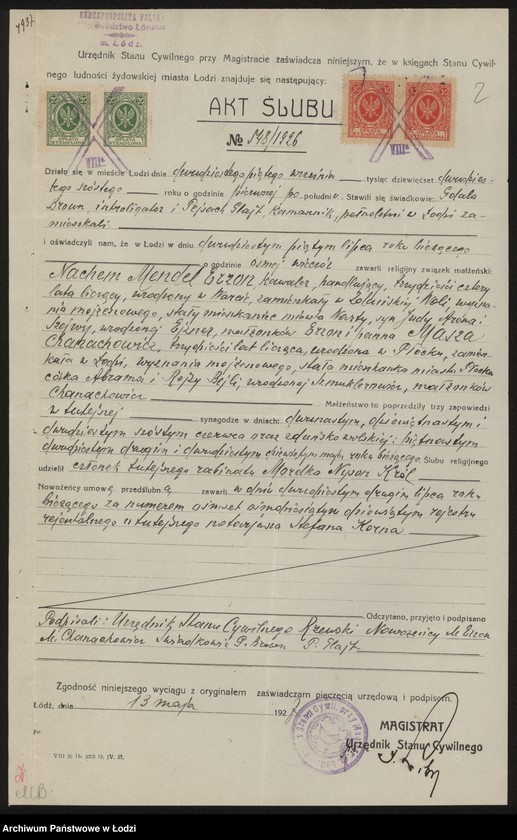 4937
RZECZPOSPOLITA POLSKA
Województwo Łódzkie
m. Łódź.
Urzędnik Stanu Cywilnego przy Magistracie zaświadcza niniejszym, że w księgach Stanu Cywil-
nego ludności żydowskiej miasta Łodzi znajduje się następujący:
2
AKT ŚLUBU
№ 1926
VIIIa
VIIIa
Działo się w mieście Łodzi dnia dwudziestego piątego września tysiąc dziewięćset dwudzies-
tego szóstego roku o godzinie pierwszej po południu. Stawili się świadkowie:
Brown, introligator i Pejsach Flajt, kamasznik, pełnoletni w Łodzi za-
mieszkali
i oświadczyli nam, że w Łodzi w dniu dwudziestym piątym lipca roku bieżącego
o godzinie ósmej wieczór zawarli religijny związek małżeński:
Nachem Mendel Erzon kawaler, handlujący, trzydzieści cztery
lata liczący, urodzony w Warcie, zamieszkały w Zduńskiej Woli, wyzna-
nia mojżeszowego, stały mieszkaniec miasta Warty, syn Judy Arona i
urodzonej małżonków Erzon i panna Masza
Chanachowicz, trzydzieści lat licząca, urodzona w Płocku, zamiesz-
kała w Łodzi, wyznania mojżeszowego, stała mieszkanka miasta Płocka
córka Abrama i Rojzy Bejli, urodzonej małżonków
Chanachowicz Małżeństwo to poprzedziły trzy zapowiedzi
w tutejszej synagodze w dniach: dwunastym, dziewiętnastym i
dwudziestym szóstym czerwca oraz zduńskowolskiej: piętnastym
dwudziestym drugim i dwudziestym dziewiątym maja roku bieżącego. Ślubu religijnego
udzielił członek tutejszego rabinatu Mordka Nysen Król
Nowożeńcy umowę przedślubną zawarli w dniu dwudziestym drugim lipca roku
bieżącego za numerem osiemset osiemdziesiątym dziewiątym rejestru
rejentalnego u tutejszego notarjusza Stefana Korna
Odczytano, przyjęto i podpisano
Podpisali: Urzędnik Stanu Cywilnego Rzewski Nowożeńcy M. Erzon
M. Chanachowicz Świadkowie Brown P. Flajt
Zgodność niniejszego wyciągu z oryginałem zaświadczam pieczęcią urzędową i podpisem.
Łódź, dnia 13 maja 192
MAGISTRAT
Urzędnik Stanu Cywilnego
M.B.
Archiwum Państwowe w Łodzi